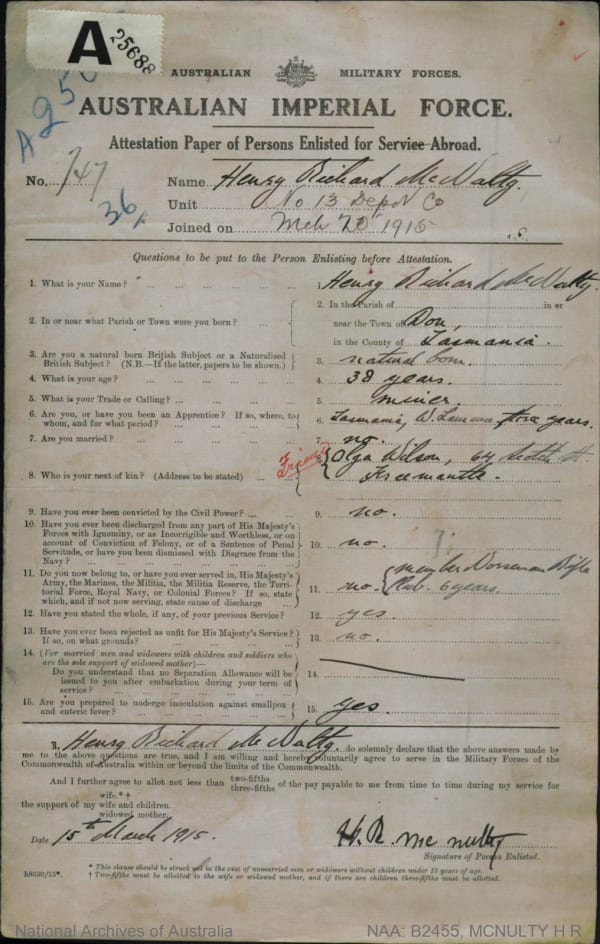 A 25688
AUSTRALIAN MILITARY FORCES.
AUSTRALIAN IMPERIAL FORCE.
Attestation Paper of Persons Enlisted for Service Abroad.
No. 747 Name Henry Richard McNulty.
36 Unit No 13 Depot Co
Joined on Mch 20 1915
Questions to be put to the Person Enlisting before Attestation.
1. What is your Name? 1. Henry Richard McNulty.
2. In or near what Parish or Town were you born? 2. In the Parish of in or
near the Town of Don,
in the County of Tasmania.
3. Are you a natural born British Subject or a Naturalised
British Subject? (N.B.—If the latter, papers to be shown.) 3. natural born.
4. What is your age? 4. 38 years.
5. What is your Trade or Calling? 5. miner.
6. Are you, or have you been an Apprentice? If so, where, to
whom, and for what period? 6. Tasmania, W. years.
7. Are you married? 7. no.
8. Who is your next of kin? (Address to be stated) Friend 8. Olga Wilson, 64 St.
Freemantle.
9. Have you ever been convicted by the Civil Power? 9. no.
10. Have you ever been discharged from any part of His Majesty's
Forces with Ignominy, or as Incorrigible and Worthless, or on
account of Conviction of Felony, or of a Sentence of Penal
Servitude, or have you been dismissed with Disgrace from the
Navy? 10. no.
11. Do you now belong to, or have you ever served in, His Majesty's
Army, the Marines, the Militia, the Militia Reserve, the Terri-
torial Force, Royal Navy, or Colonial Forces? If so, state
which, and if not now serving, state cause of discharge 11. no. member Norseman Rifle
Club. 6 years.
12. Have you stated the whole, if any, of your previous Service? 12. yes
13. Have you ever been rejected as unfit for His Majesty's Service?
If so, on what grounds? 13. no.
14. (For married men and widowers with children and soldiers who
are the sole support of widowed mother)—
Do you understand that no Separation Allowance will be
issued to you after embarkation during your term of
service? 14.
15. Are you prepared to undergo inoculation against smallpox
and enteric fever? 15. yes.
I, Henry Richard McNulty. do solemnly declare that the above answers made by
me to the above questions are true, and I am willing and hereby voluntarily agree to serve in the Military Forces of the
Commonwealth of Australia within or beyond the limits of the Commonwealth.
And I further agree to allot not less than two-fifths three-fifths of the pay payable to me from time to time during my service for
wife.*†
the support of my wife and children.
widowed mother.
Date 15th March 1915. H. R. McNulty
Signature of Person Enlisted.
* This clause should be struck out in the case of unmarried men or widowers without children under 18 years of age.
† Two-fifths must be allotted to the wife or widowed mother, and if there are children three-fifths must be allotted.
National Archives of Australia NAA: B2455, MCNULTY H R